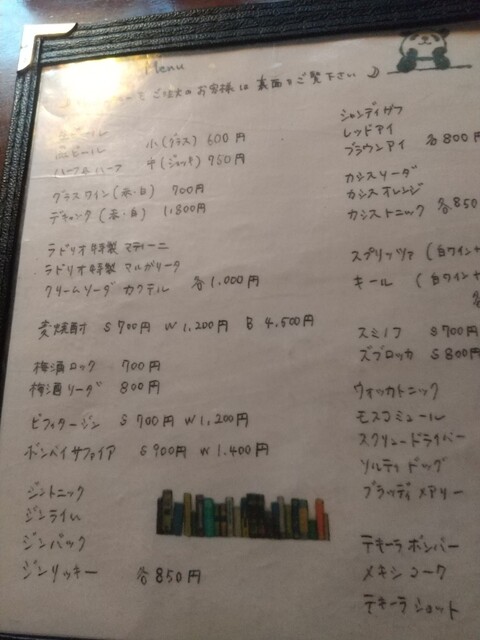 Menu
ご注文のお客様は裏面をご覧下さい
生ビール
黒ビール 小(グラス) 600円
ハーフ&ハーフ 中(ジョッキ) 950円
グラスワイン(赤・白) 700円
デキャンタ(赤・白) 1,800円
ラドリオ特製 マティーニ
ラドリオ特製 マルガリータ
クリームソーダ カクテル 各1,000円
麦焼酎 S 700円 W 1,200円 B 4,500円
梅酒ロック 700円
梅酒ソーダ 800円
ビフィータージン S 700円 W 1,200円
ボンベイサファイア S 900円 W 1,400円
ジントニック
ジンライム
ジンバック
ジンリッキー 各850円
シャンディガフ
レッドアイ
ブラウンアイ 各800円
カシスソーダ
カシスオレンジ
カシストニック 各850
スプリッツァ (白ワイン+
キール (白ワイン+
各
スミノフ S 700円
ズブロッカ S 800円
ウォッカトニック
モスコミュール
スクリュードライバー
ソルティドッグ
ブラッディメアリー
テキーラボンバー
メキシコーク
テキーラショット